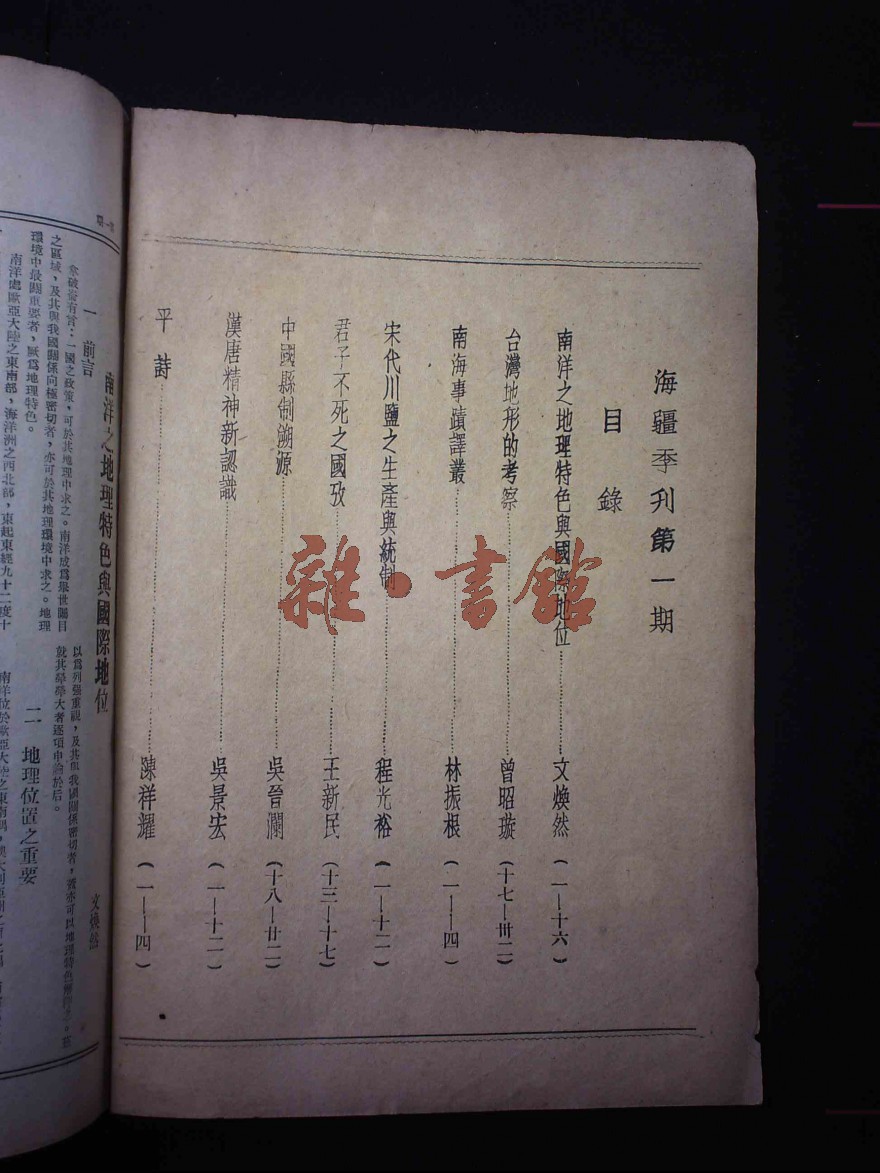 海疆季刊第一期
目錄
南洋之地理特色與國際地位 文煥然 (一——十六)
台灣地形的考察 曾昭璇 (十七—卅二)
南海事蹟譯叢 林振根 (一——四)
宋代川鹽之生產與統制 程光裕 (一—十二)
君子不死之國攷 王新民 (十三—十七)
中國縣制溯源 吳晉瀾 (十八—廿二)
漢唐精神新認識 吳景宏 (一—十二)
平蒔 陳祥耀 (一——四)
雜·書館
南洋之地理特色與國際地位
文煥然
一 前言
拿破崙有言：一國之政策，可於其地理中求之。南洋成為舉世矚目
之區域，及其與我國關係向極密切者，亦可於其地理環境中求之。地理
環境中最關重要者，厥為地理特色。
南洋處歐亞大陸之東南部，海洋洲之西北部，東起東經九十二度十
以為列強重視，及其與我國關係密切者，
就其犖犖大者逐項申論於后。
二 地理位置之重要